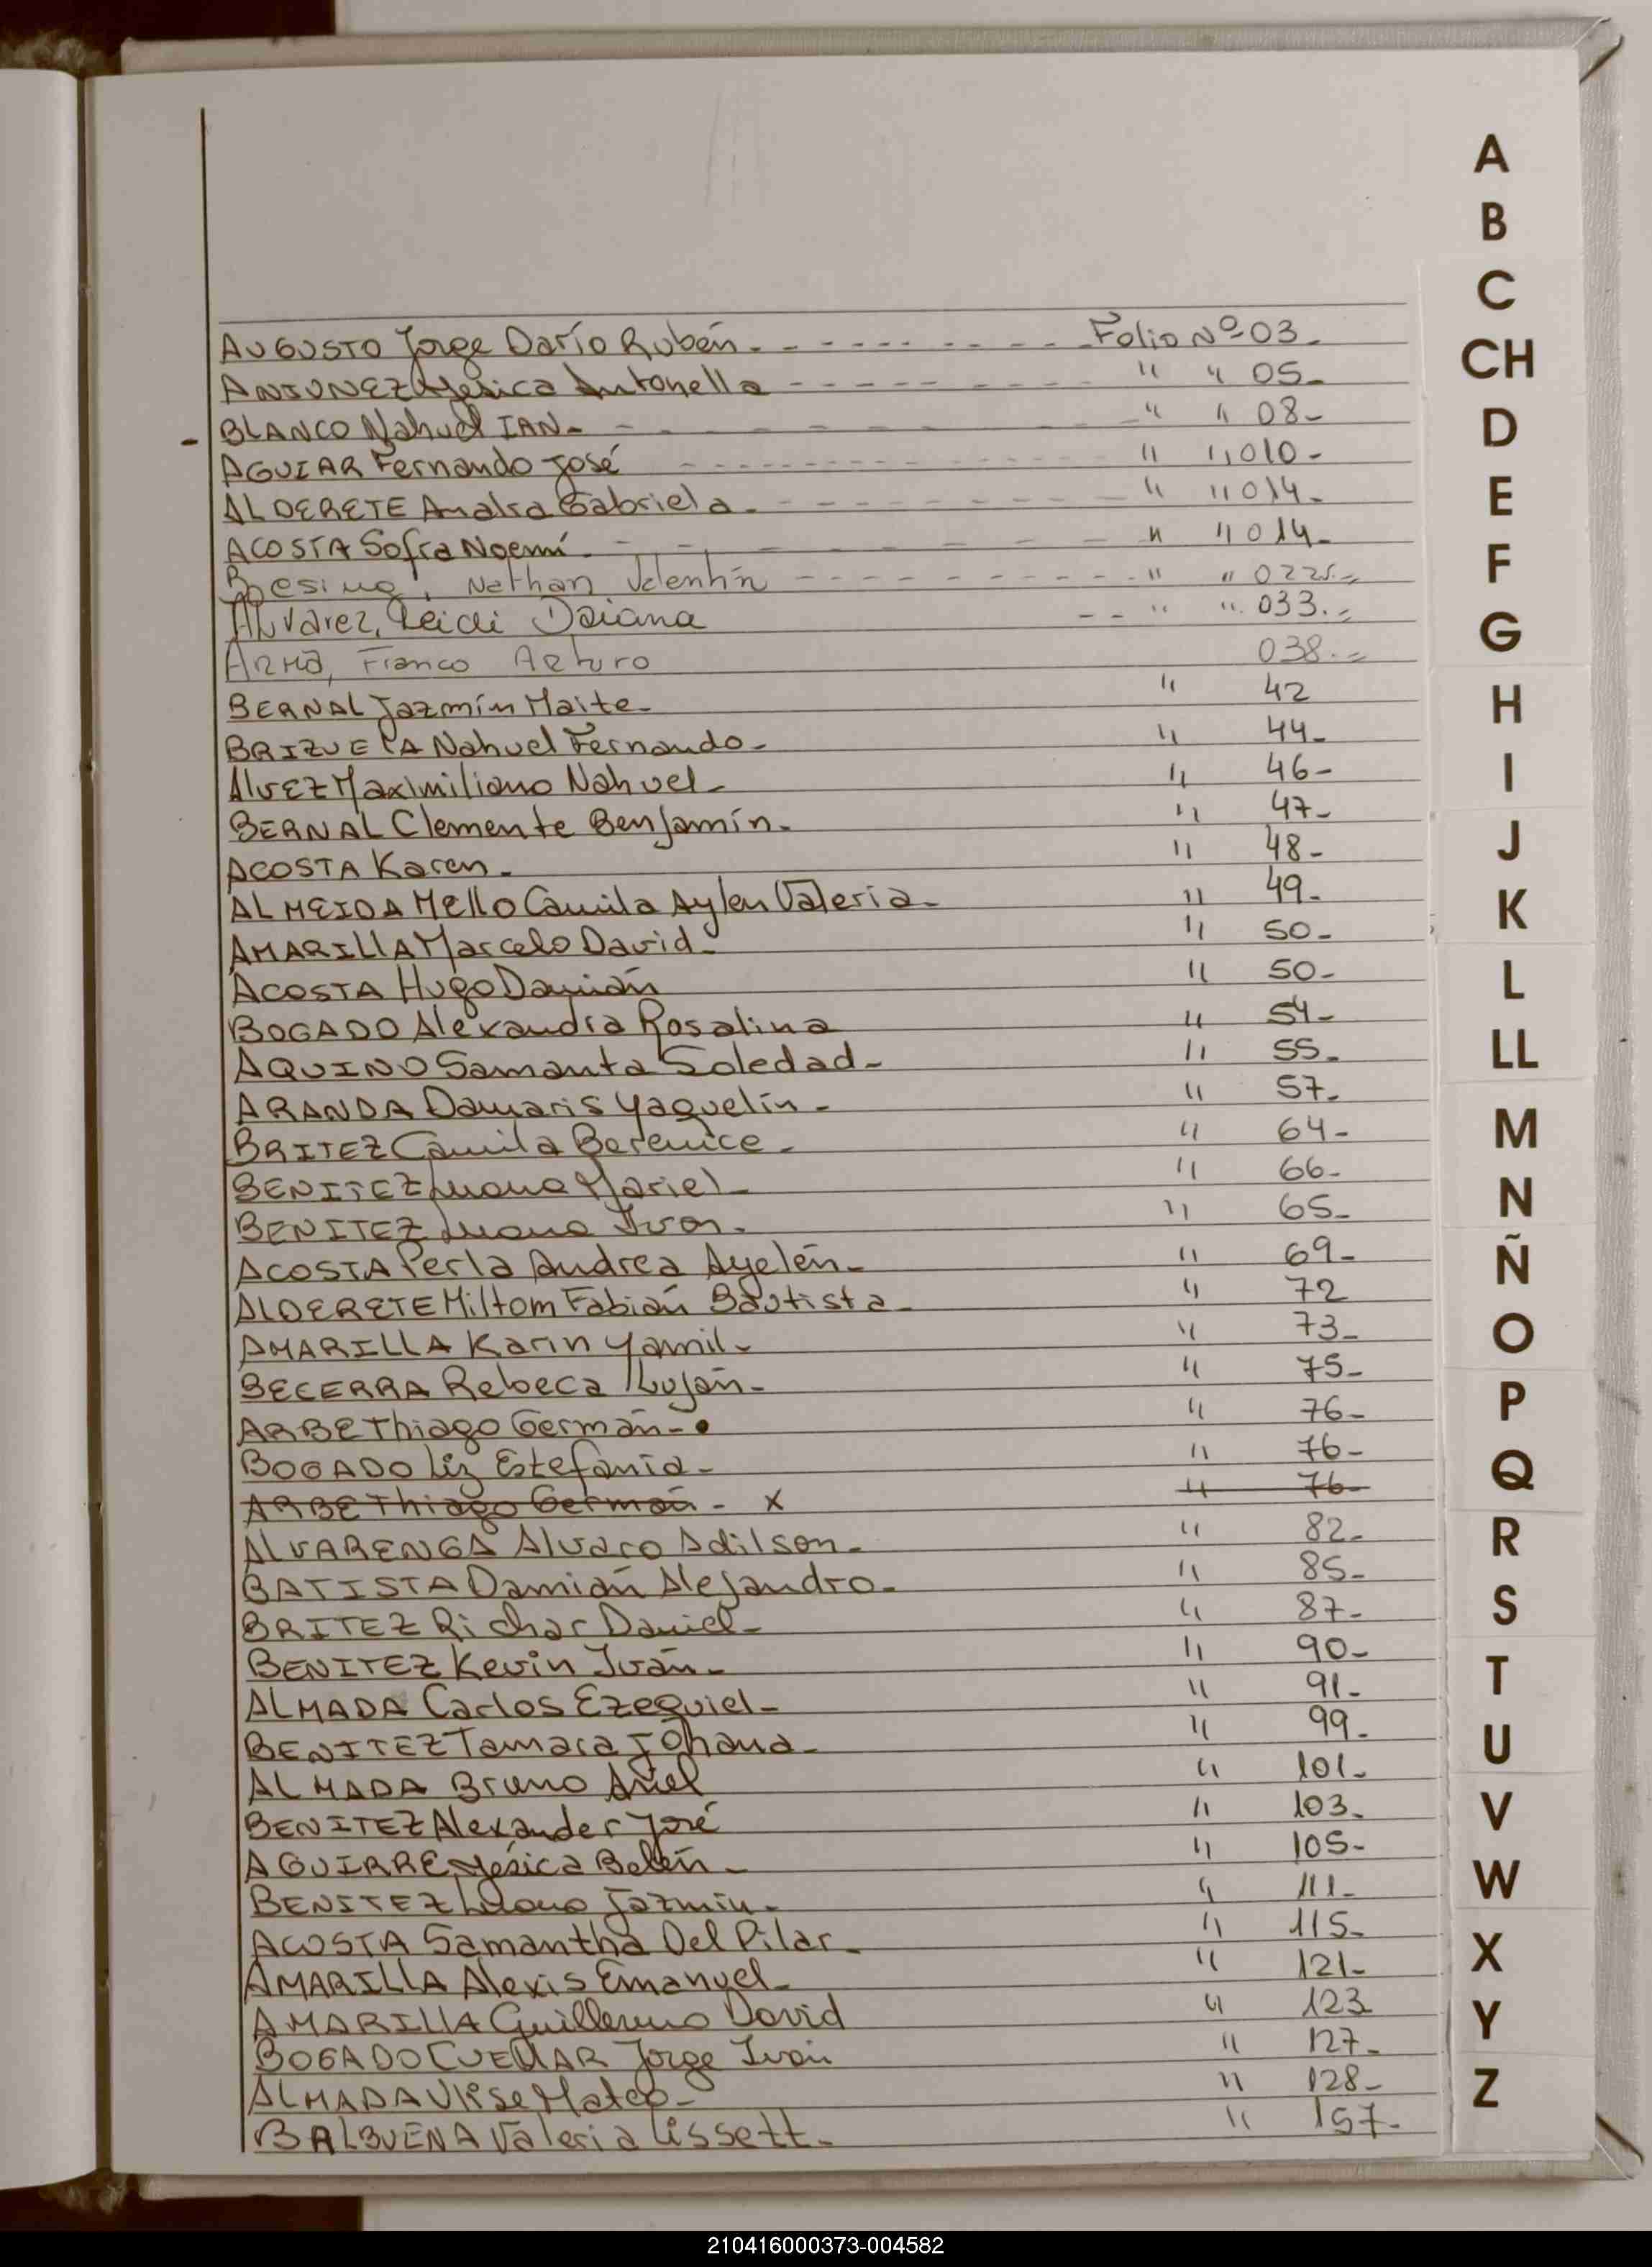 AUGUSTO Jorge Darío Rubén. - - - - - - - - - Folio Nº 03.
ANTUNEZ Yesica Antonella - - - - - - - - " " 05-
- BLANCO Nahuel IAN - - - - - - - - " " 08-
AGUIAR Fernando José - - - - - - - - - - " " 010-
ALDERETE Analía Gabriela. - - - - - - - - " " 014-
ACOSTA Sofía Noemí - - - - - - - " " 014-
Nathan Valentín - - - - - - - - - " " 022
Alvarez, Leidi Daiana - - " " 033.=
Franco Arturo 038.=
BERNAL Jazmín Maite- " 42
BRIZUELA Nahuel Fernando- " 44-
AlvEz Maximiliano Nahuel- " 46-
BERNAL Clemente Benjamín- " 47-
ACOSTA Karen- " 48-
ALMEIDA MEllO Camila Aylen Valeria- " 49-
AMARIllA Marcelo David- " 50-
ACOSTA Hugo Damián " 50-
BOGADO Alexandra Rosalina " 54-
AQUINO Samanta Soledad- " 55-
ARANDA Damaris Yaquelín- " 57-
BRITEZ Camila Berenice- " 64-
BENITEZ Luana Mariel- " 66-
BENITEZ Luana - " 65-
ACOSTA Perla Andrea Ayelén- " 69-
ALDERETE Miltom Fabián Bautista- " 72
AMARILLA Karin Yamil- " 73-
BECERRA Rebeca Luján- " 75-
ARBE Thiago Germán- • " 76-
BOGADO Liz Estefanía- " 76-
ARBE Thiago Germán- x " 76-
ALVARENGA Alvaro Adilson- " 82-
BATISTA Damián Alejandro- " 85-
BRITEZ Richar Daniel- " 87-
BENITEZ Kevin Iván- " 90-
ALMADA Carlos Ezequiel- " 91-
BENITEZ Tamara Johana- " 99-
ALMADA Bruno Ariel " 101-
BENITEZ Alexander José " 103-
AGUIRRE Yésica Belén- " 105-
BENITEZ Jazmín- " 111-
ACOSTA Samantha Del Pilar- " 115-
AMARILLA Alexis Emanuel- " 121-
AMARILLA Guillermo David " 123
BOGADO CUELLAR Jorge Iván " 127-
ALMADA Ulise Mateo- " 128-
BALBUENA Valeria Lissett- " 157-
A
B
C
CH
D
E
F
G
H
I
J
K
L
LL
M
N
Ñ
O
P
Q
R
S
T
U
V
W
X
Y
Z
210416000373-004582